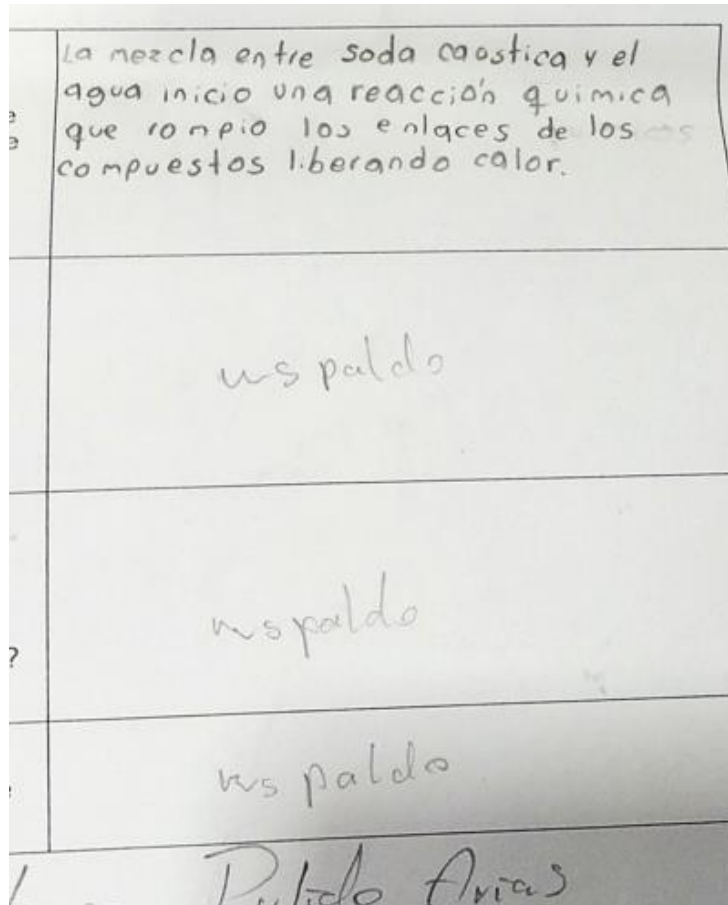 La mezcla entre soda caostica y el
agua inicio una reacción quimica
que rompio los enlaces de los
compuestos liberando calor.
respaldo
respaldo
?
respaldo
Pulido Arias